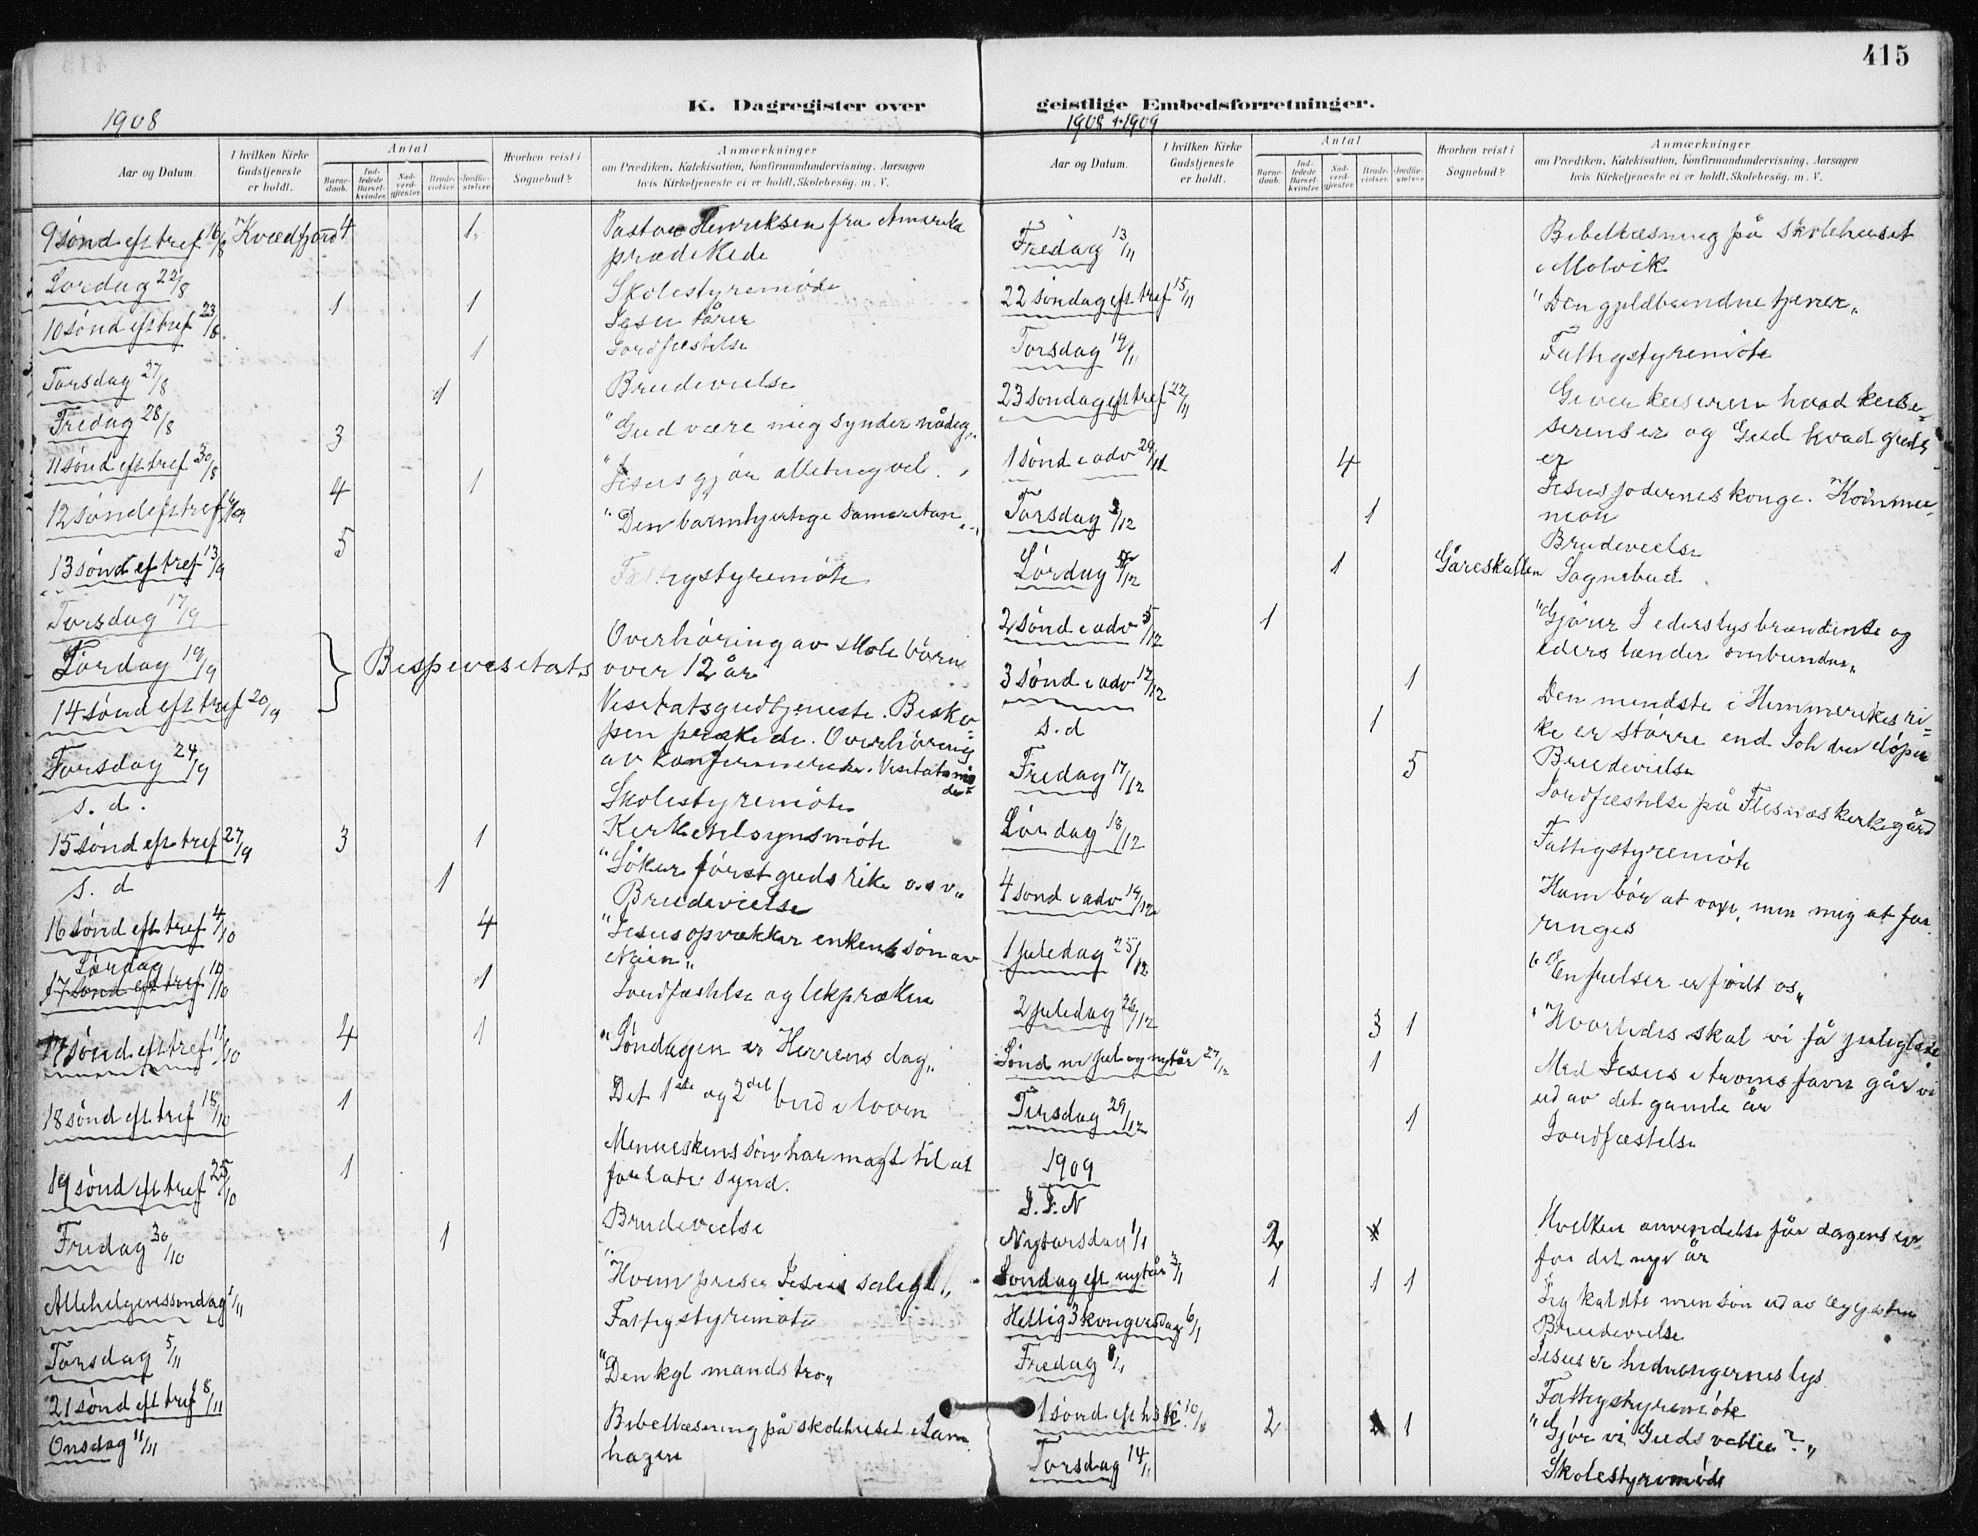 415
K. Dagregister over geistlige Embedsforretninger.
1908
Aar og Datum.
I hvilken Kirke Gudstjeneste er holdt.
Antal
Barne-daab.
Ind-ledede Barsel-kvinder.
Nad-verd-gjester.
Brude-vielser.
Jordfæ-stelser.
Hvorhen reist i Sognebud?
Anmærkninger
om Prædiken, Katekisation, Konfirmandundervisning, Aarsagen
hvis Kirketjeneste ei er holdt, Skolebesøg, m. V.
9 sønd eft tref 16/8 Kvædfjord 4 1 Pastor Henriksen fra Amerika
prædikede
Lørdag 22/8 Skolestyremøde
10 sønd eft tref 23/8 1 1 Jesu tårer
1 Jordfæstelse
Torsdag 27/8
Fredag 28/8 1 Brudevielse
11 sønd eft tref 30/8 3 "Gud være mig synder nådig"
12 sønd eft tref 6/9 4 1 "Jesus gjør alleting vel"
13 sønd eft tref 13/9 5 "Den barmhjertige samaritan"
Torsdag 17/9 Fattigstyremøte
Lørdag 19/9 Bispevisitats Overhøring av skolebørn
over 12 år
14 sønd eft tref 20/9 Visitatsgudtjeneste. Bisko-
pen prækede. Overhøring
av konfirmerede. Visitatsmø
Torsdag 24/9 Skolestyremøte
s. d. Kirketilsynsmøte
15 sønd eft tref 27/9 3 1 "Søker først guds rike o.s.v."
s. d 1 Brudevielse
16 sønd eft tref 4/10 4 "Jesus opvækker enkens søn av
Nain"
Lørdag 10/10 1 Jordfæstelse og likpræken
17 sønd eft tref
17 sønd eft tref 11/10 4 1 "Søndagen er Herrens dag"
18 sønd eft tref 18/10 1 Det 1ste og 2det bud i loven
19 sønd eft tref 25/10 1 Menneskens søn har magt til at
forlate synd.
Fredag 30/10 1 Brudevielse
Allehelgenssøndag 1/11 "Hvem priser Jesus salige"
Torsdag 5/11 Fattigstyremøte
21 sønd eft tref 8/11 "Den kgl mands tro"
Onsdag 11/11 Bibellæsning på skolehuset i Lam
hagen
1908 + 1909
Aar og Datum.
I hvilken Kirke Gudstjeneste er holdt.
Antal
Barne-daab.
Ind-ledede Barsel-kvinder.
Nad-verd-gjester.
Brude-vielser.
Jordfæ-stelser.
Hvorhen reist i Sognebud?
Anmærkninger
om Prædiken, Katekisation, Konfirmandundervisning, Aarsagen
hvis Kirketjeneste ei er holdt, Skolebesøg, m. V.
Fredag 13/11 Bibellæsning på skolehuset
i Molvik
22 søndag eft tref 15/11 "Den gjeldbundne tjener"
Torsdag 19/11 Fattigstyremøte
23 søndag eft tref 22/11 Giv keiseren hvad kei-
serens er og Gud hvad guds
er
1 sønd i adv 29/11 4 Jesus jødernes konge. Kommu-
nion
Torsdag 3/12 1 Brudevielse
Lørdag /12 1 Gåreskallen Sognebud
2 sønd i adv 5/12 1 "Gjører I eders lys brændende og
eders lænder ombundne"
3 sønd i adv 12/12 1 Den mindste i Himmerikes ri-
ke er større end Joh den døper
s. d 1 Brudevielse
Fredag 17/12 5 Jordfæstelse på Flesnæs kirkegård
Lørdag 18/12 Fattigstyremøte
4 sønd i adv 19/12 Ham bør at voxe, men mig at for
ringes
1 juledag 25/12 "En frelser er født os"
2 juledag 26/12 3 1 "Hvorledes skal vi få juleglæde
Sønd m jul og nytår 27/12 1 Med Jesus i troens favn går vi
ud av det gamle år
Tirsdag 29/12 1 Jordfæstelse
1909
I. J. N
Nytårsdag 1/1 2 Hvilken anvendelse får dagens ev
for det nye år
Søndag eft nytår 3/1 1 1 1 Jeg kaldte min søn ud av Egypten
Brudevielse
Hellig 3 kongersdag 6/1 Jesus er hedningernes lys
Fredag 8/1 Fattigstyremøte
1 sønd eft h 3 k 10/1 2 1 "Gjør vi Guds vilie?"
Torsdag 14/1 Skolestyremøde